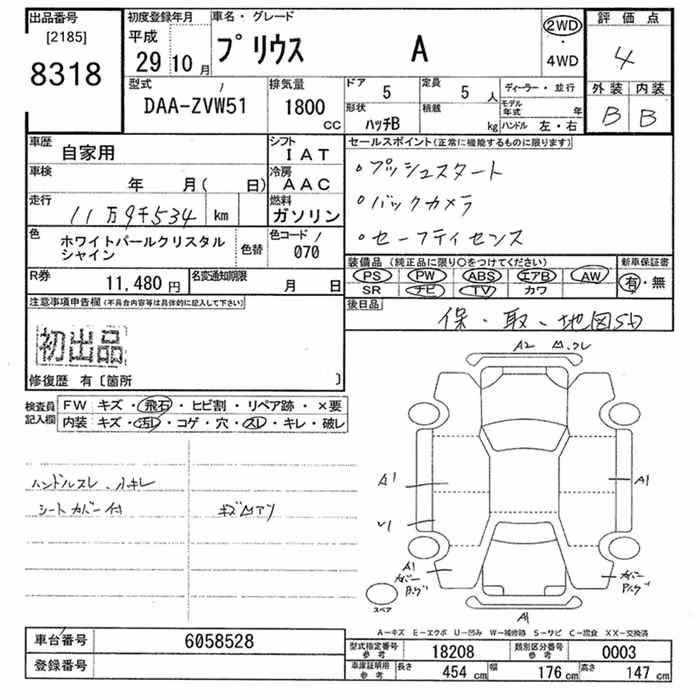 出品番号 初度登録年月 車名・グレード 評価点
[2185] 平成
8318 29年10月 プリウス A 2WD・4WD 4
型式 排気量 ドア 5 定員 5人 ディーラー・並行 外装 内装
DAA-ZVW51 1800cc 形状 ハッチB 積載 kg モデル年式 年 B B
ハンドル 左・右
車歴 自家用 シフト IAT セールスポイント(正常に機能するものに限ります)
車検 年 月( 日) 冷房 AAC ・プッシュスタート
走行 11万9千534 km 燃料 ガソリン ・バックカメラ
色 ホワイトパールクリスタルシャイン 色替 色コード/ 070 ・セーフティセンス
R券 11,480円 名変通知期限 月 日
装備品(純正品に限り○をつけてください) 新車保証書
PS PW ABS エアB AW 有・無
SR ナビ TV カワ
注意事項申告欄(不具合内容等は具体的に記入して下さい) 後日品 保・取・地図SD
初出品
修復歴 有〔箇所 〕
検査員記入欄 FW キズ・飛石・ヒビ割・リペア跡・×要
内装 キズ・汚レ・コゲ・穴・スレ・キレ・破レ
A2
ハンドルスレ、小キレ
シートカバー付
A1
A1
A1
A1
スペア
A-キズ E-エクボ U-凹み W-補修跡 S-サビ C-腐食 XX-交換済
車台番号 6058528 型式指定番号 参考 18208 類別区分番号 参考 0003
登録番号 車庫証明用 参考 長さ 454cm 幅 176cm 高さ 147cm